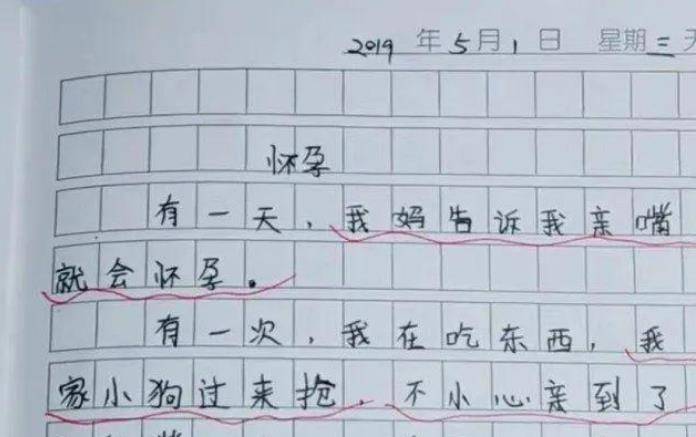 2019年5月1日 星期三 天
怀孕
有一天，我妈告诉我亲嘴
就会怀孕。
有一次，我在吃东西，我
家小狗过来抢，不小心亲到了